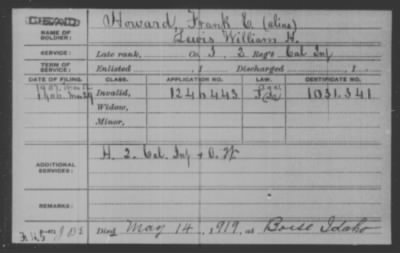 DEAD
Howard, Frank C (alias)
NAME OF SOLDIER:
Lewis William H.
SERVICE:
Late rank, Co. I, 2 Reg't Cal Inf
TERM OF SERVICE:
Enlisted , 1 Discharged , 1
DATE OF FILING. CLASS. APPLICATION NO. LAW. CERTIFICATE NO.
Invalid, 1246443 1031.341
Widow,
Minor,
ADDITIONAL SERVICES:
H. 2. Cal. Inf
REMARKS:
Died May 14, 1919, at Boise Idaho